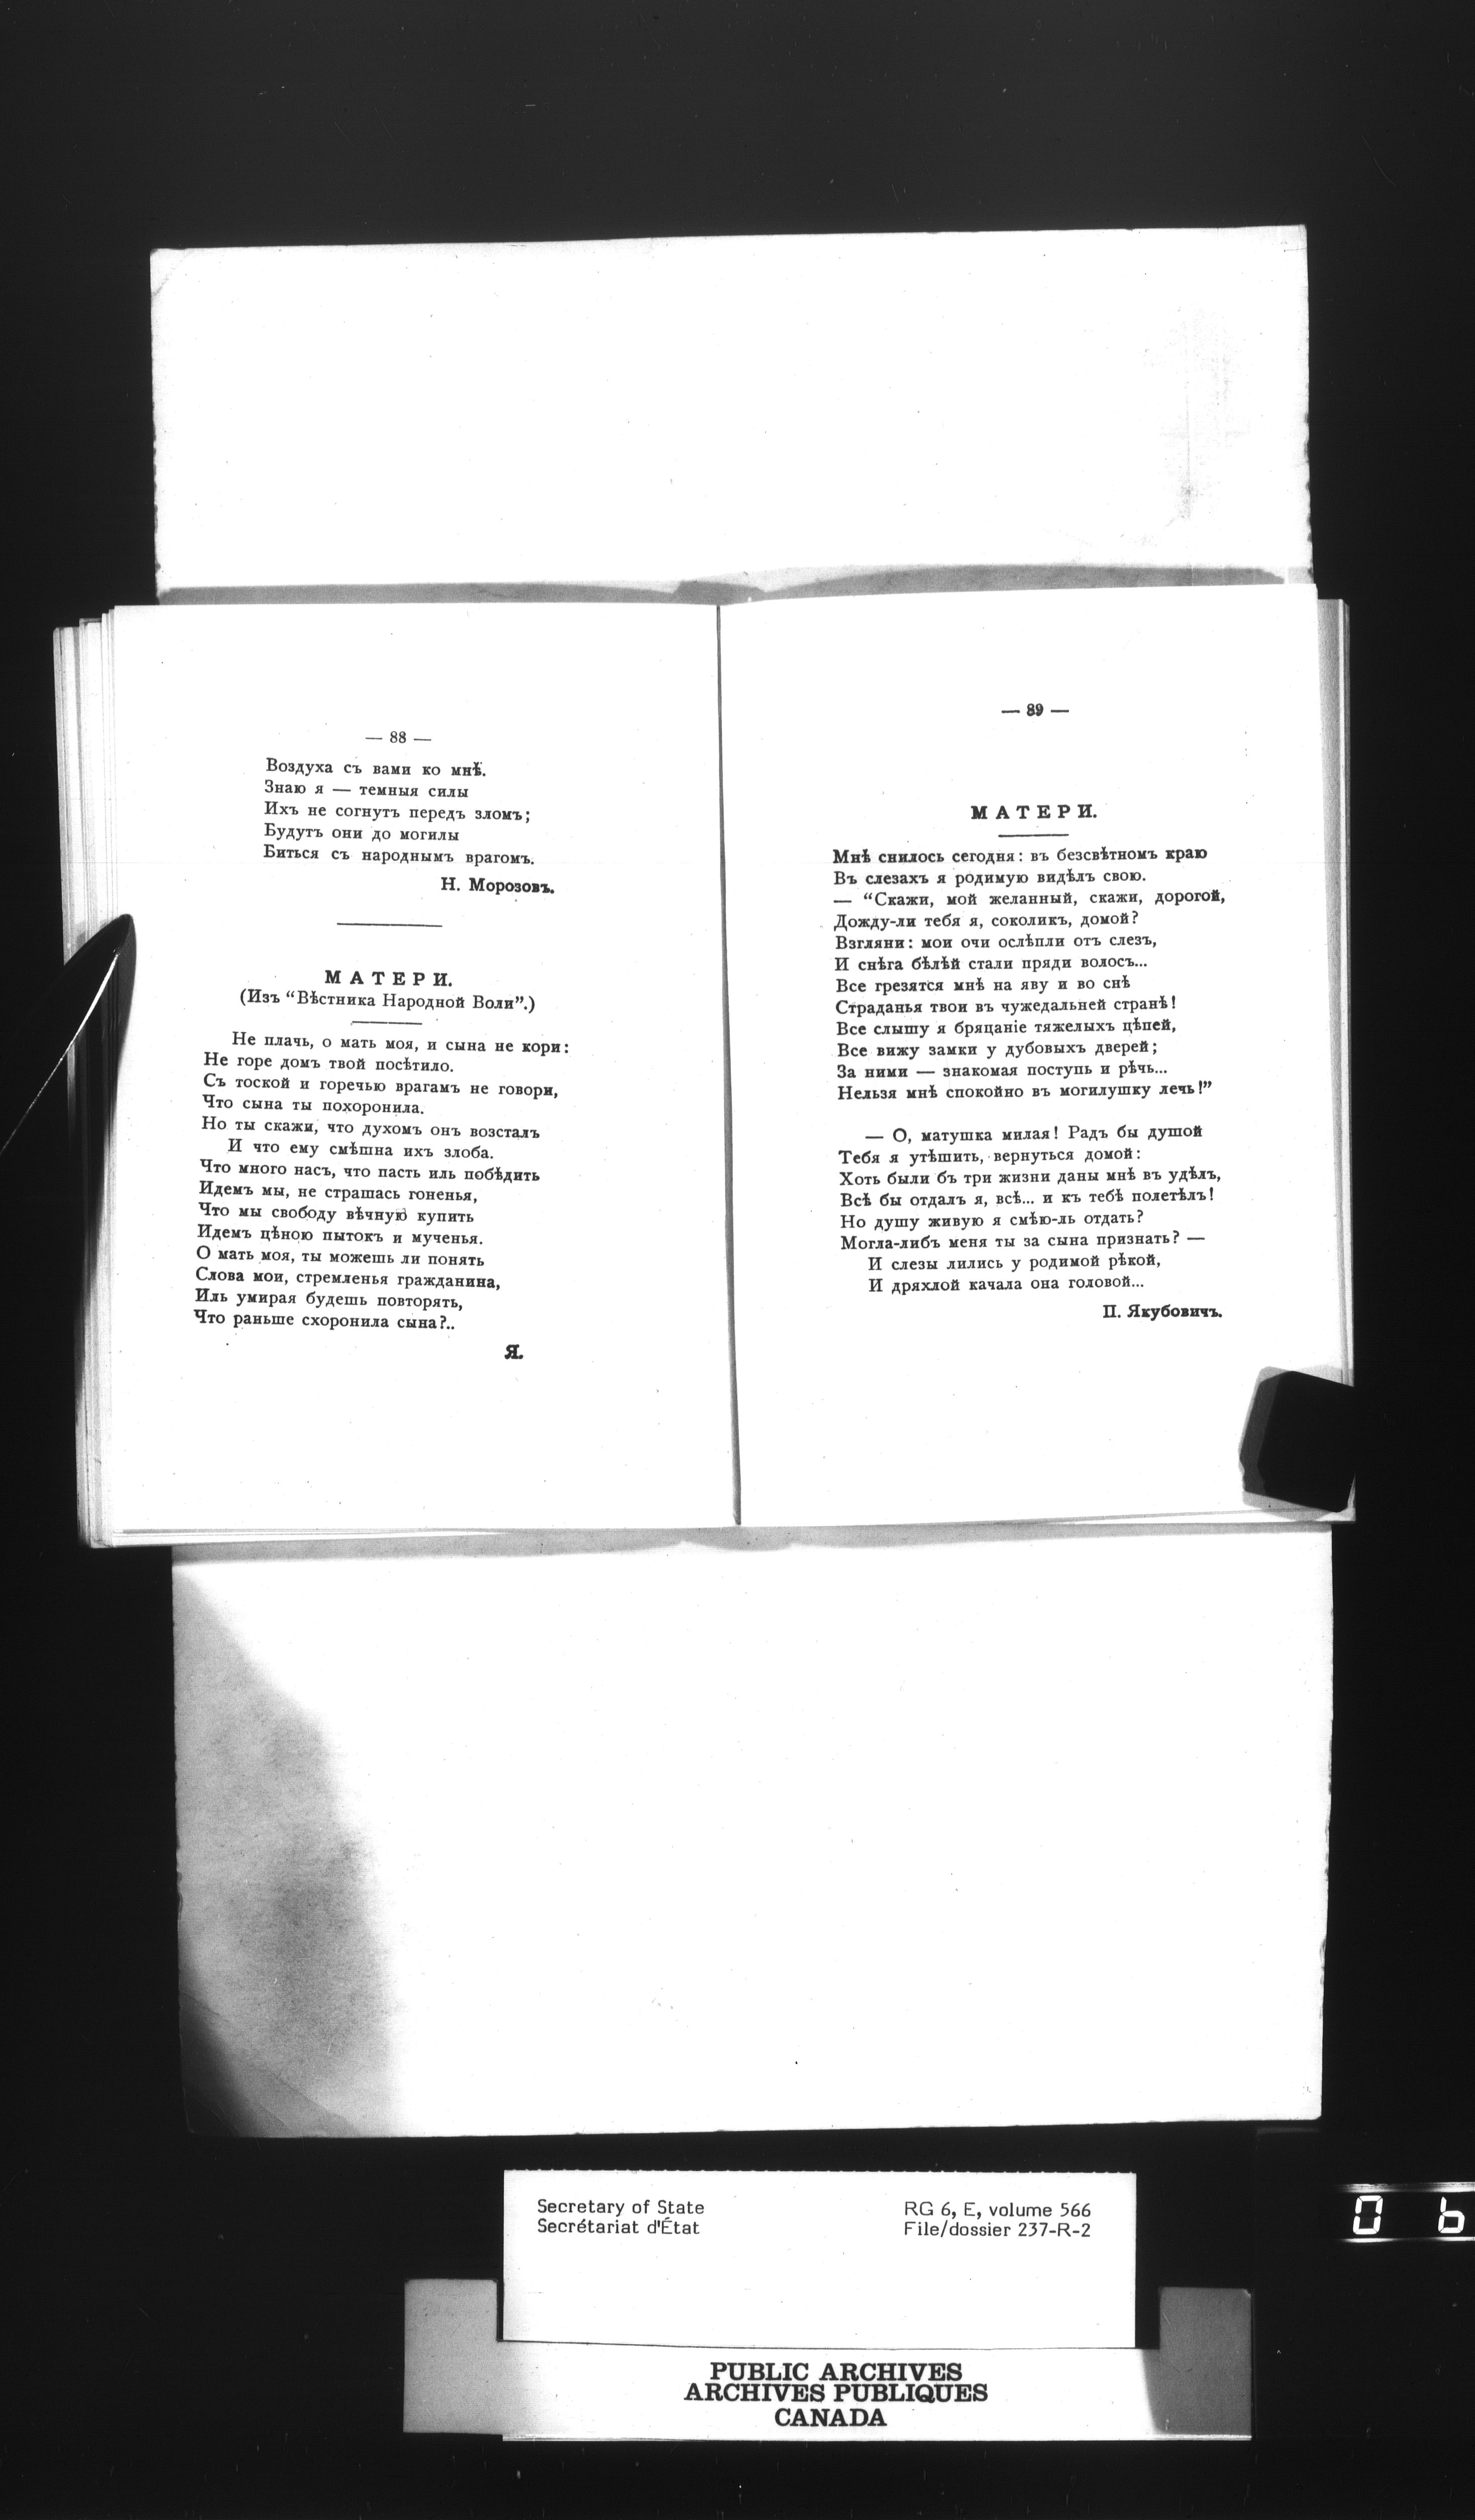 — 88 —
Воздуха съ вами ко мнѣ.
Знаю я — темныя силы
Ихъ не согнутъ передъ зломъ;
Будутъ они до могилы
Биться съ народнымъ врагомъ.
Н. Морозовъ.
МАТЕРИ.
(Изъ “Вѣстника Народной Воли”.)
Не плачь, о мать моя, и сына не кори:
Не горе домъ твой посѣтило.
Съ тоской и горечью врагамъ не говори,
Что сына ты похоронила.
Но ты скажи, что духомъ онъ возсталъ
И что ему смѣшна ихъ злоба.
Что много насъ, что пасть иль побѣдить
Идемъ мы, не страшась гоненья,
Что мы свободу вѣчную купить
Идемъ цѣною пытокъ и мученья.
О мать моя, ты можешь ли понять
Слова мои, стремленья гражданина,
Иль умирая будешь повторять,
Что раньше схоронила сына?..
Я.
— 89 —
МАТЕРИ.
Мнѣ снилось сегодня: въ безсвѣтномъ краю
Въ слезахъ я родимую видѣлъ свою.
— “Скажи, мой желанный, скажи, дорогой,
Дожду-ли тебя я, соколикъ, домой?
Взгляни: мои очи ослѣпли отъ слезъ,
И снѣга бѣлѣй стали пряди волосъ...
Все грезятся мнѣ на яву и во снѣ
Страданья твои въ чужедальней странѣ!
Все слышу я бряцаніе тяжелыхъ цѣпей,
Все вижу замки у дубовыхъ дверей;
За ними — знакомая поступь и рѣчь...
Нельзя мнѣ спокойно въ могилушку лечь!”
— О, матушка милая! Радъ бы душой
Тебя я утѣшить, вернуться домой:
Хоть были бъ три жизни даны мнѣ въ удѣлъ,
Всѣ бы отдалъ я, всѣ... и къ тебѣ полетѣлъ!
Но душу живую я смѣю-ль отдать?
Могла-либъ меня ты за сына признать? —
И слезы лились у родимой рѣкой,
И дряхлой качала она головой...
П. Якубовичъ.
Secretary of State
Secrétariat d'État
RG 6, E, volume 566
File/dossier 237-R-2
PUBLIC ARCHIVES
ARCHIVES PUBLIQUES
CANADA
0 6